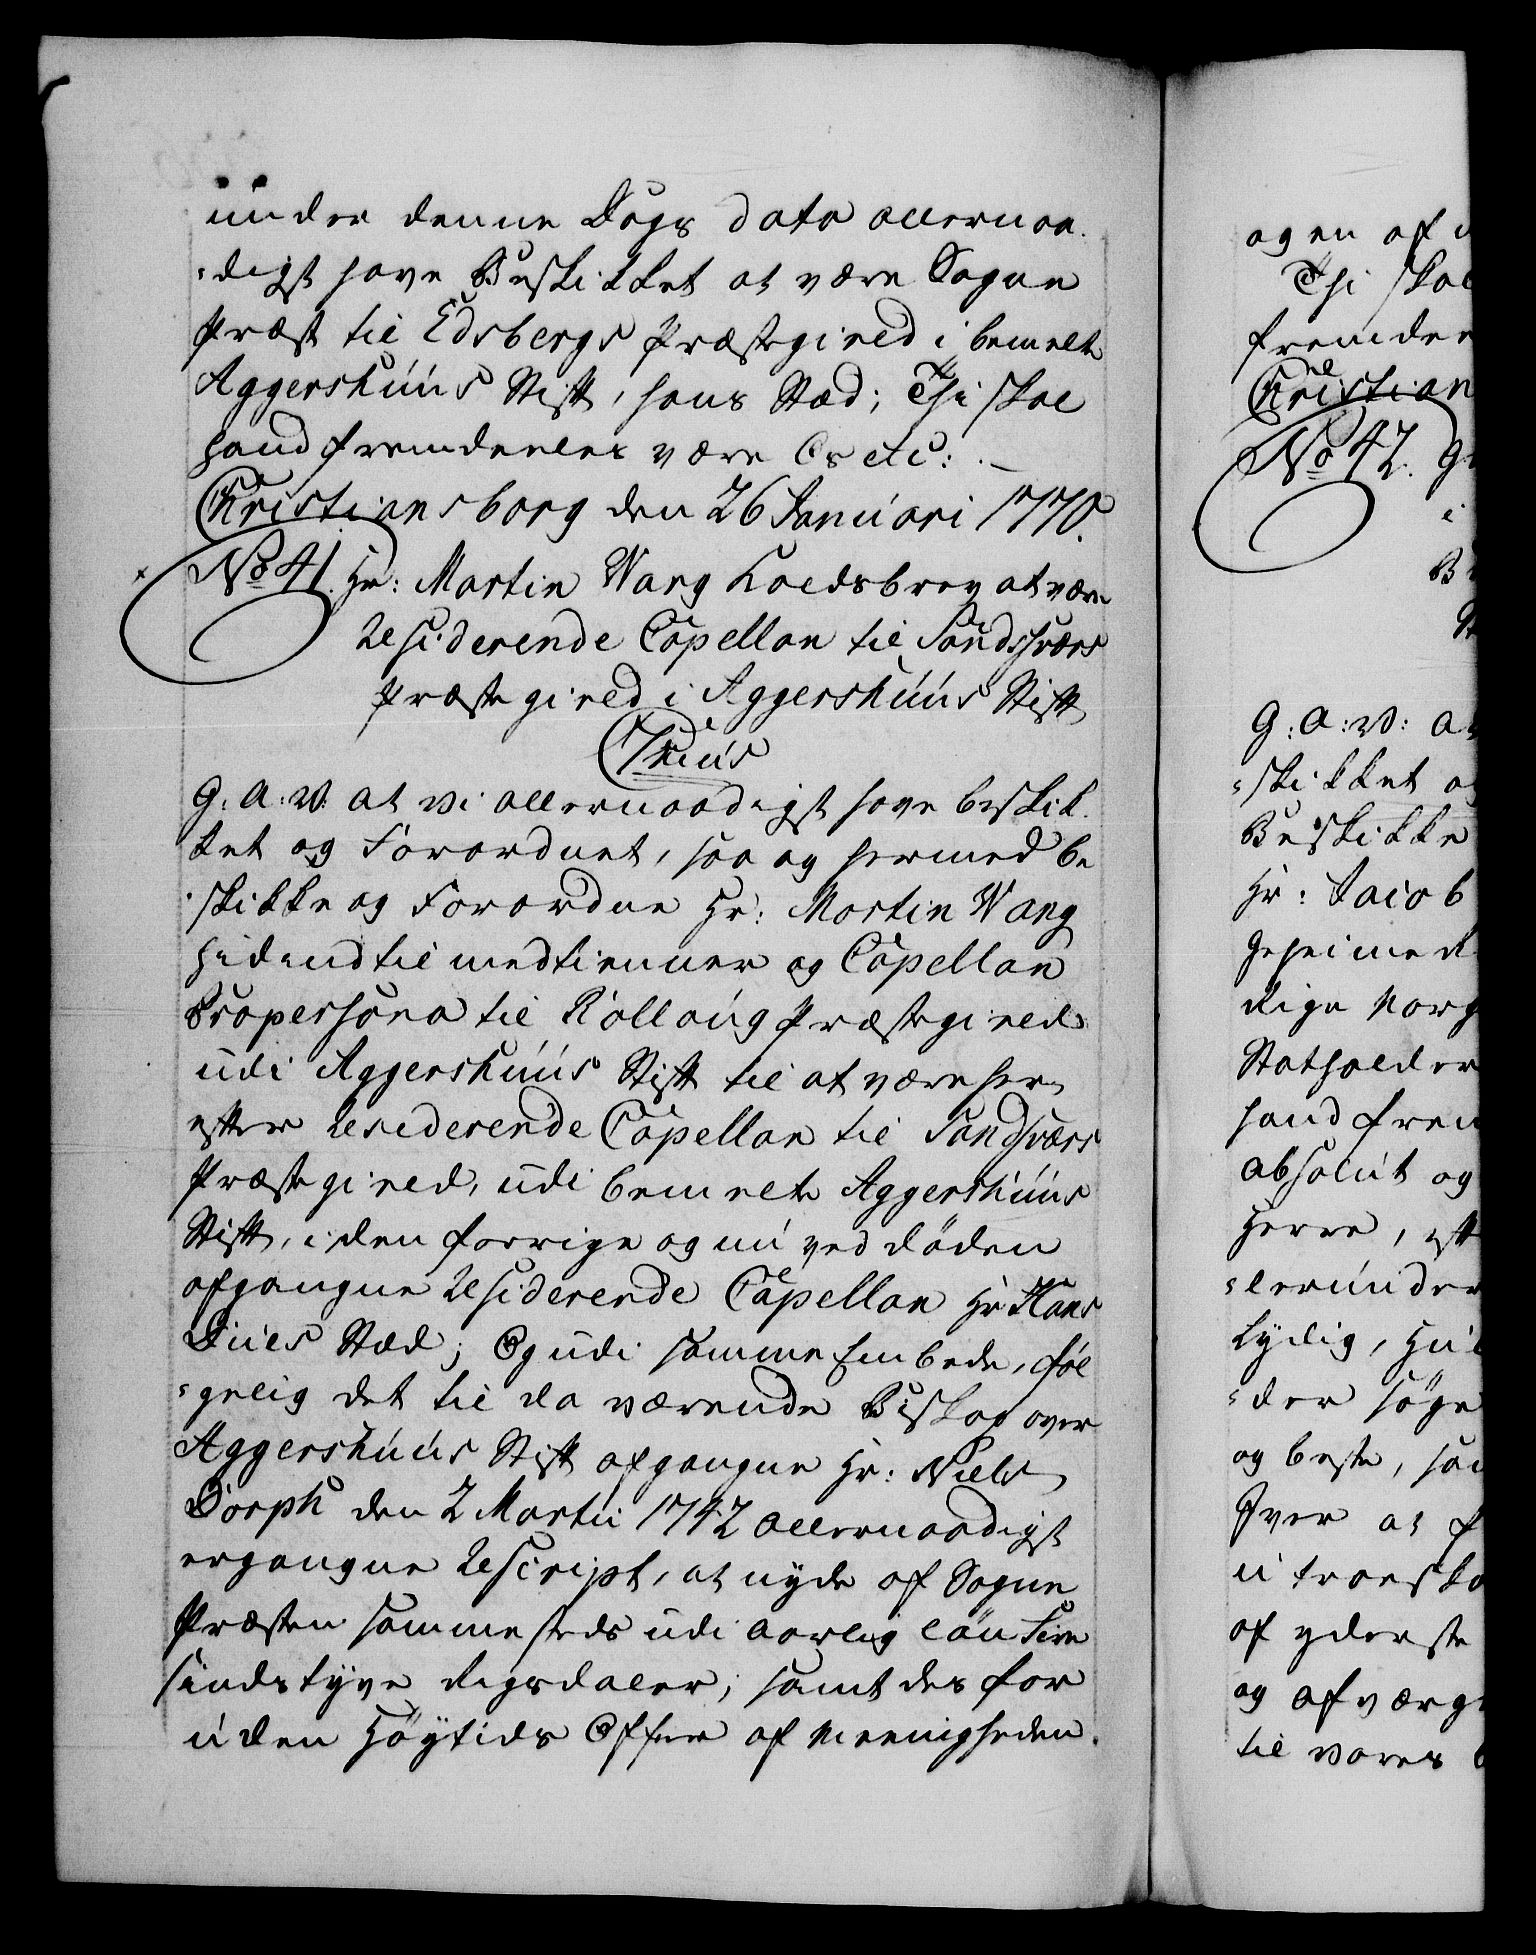 under denne Dags dato allernaa¬
-digst have Beskikket at være Sogne
Præst til Edsbergs Præstegield i bemelte
Aggershuus Stift, hans Stæd; Thi skal
hand fremdeeles være Os etc: .—
Christiansborg den 26 Januari 1770.
No 41. Hr: Martin Wang Kaldsbrev at være
Residerende Capellan til Sandsværs
Præstegield i Aggershuus Stift
C7mus
G: A: V: at vi allernaadigst have beskik¬
ket og Forordnet, saa og hermed be
-skikke og Forordne Hr: Martin Wang
hidindtil medtienner og Capellan
Propersona til Rollaug Præstegield
udi Aggershuus Stift til at være her
efter Residerende Capellan til Sandsværs
Præstegield, udi bemelte Aggershuus
Stift, i den forrige og nu ved døden
afgangne Residerende Capellan Hr Hans
Dues Stæd; Og udi samme Embede, føl
-gelig det til da værende Biskop over
Aggershuus Stift afgangne Hr: Niels
Dorph den 2 Martii 1742 allernaadigst
ergangne Rescript, at nyde af Sogne
Præsten sammesteds udi aarlig løn Fire
sindstyve Rigsdaler; samt des for
uden Høytids Offer af Menigheden.
og en af
Thi skal
fremdee
Christian
No 42. G
i
B
G: A: V: a
-skikket o
Beskikke
Hr: Jacob
Geheime R
Rige Norg
Statholder
hand frem
absolut og
Herre, eft
-lerunder
Lydig, Hul
-der søge
og beste, saa
Over at f
u troeska
af yderste
og afværg
til vores